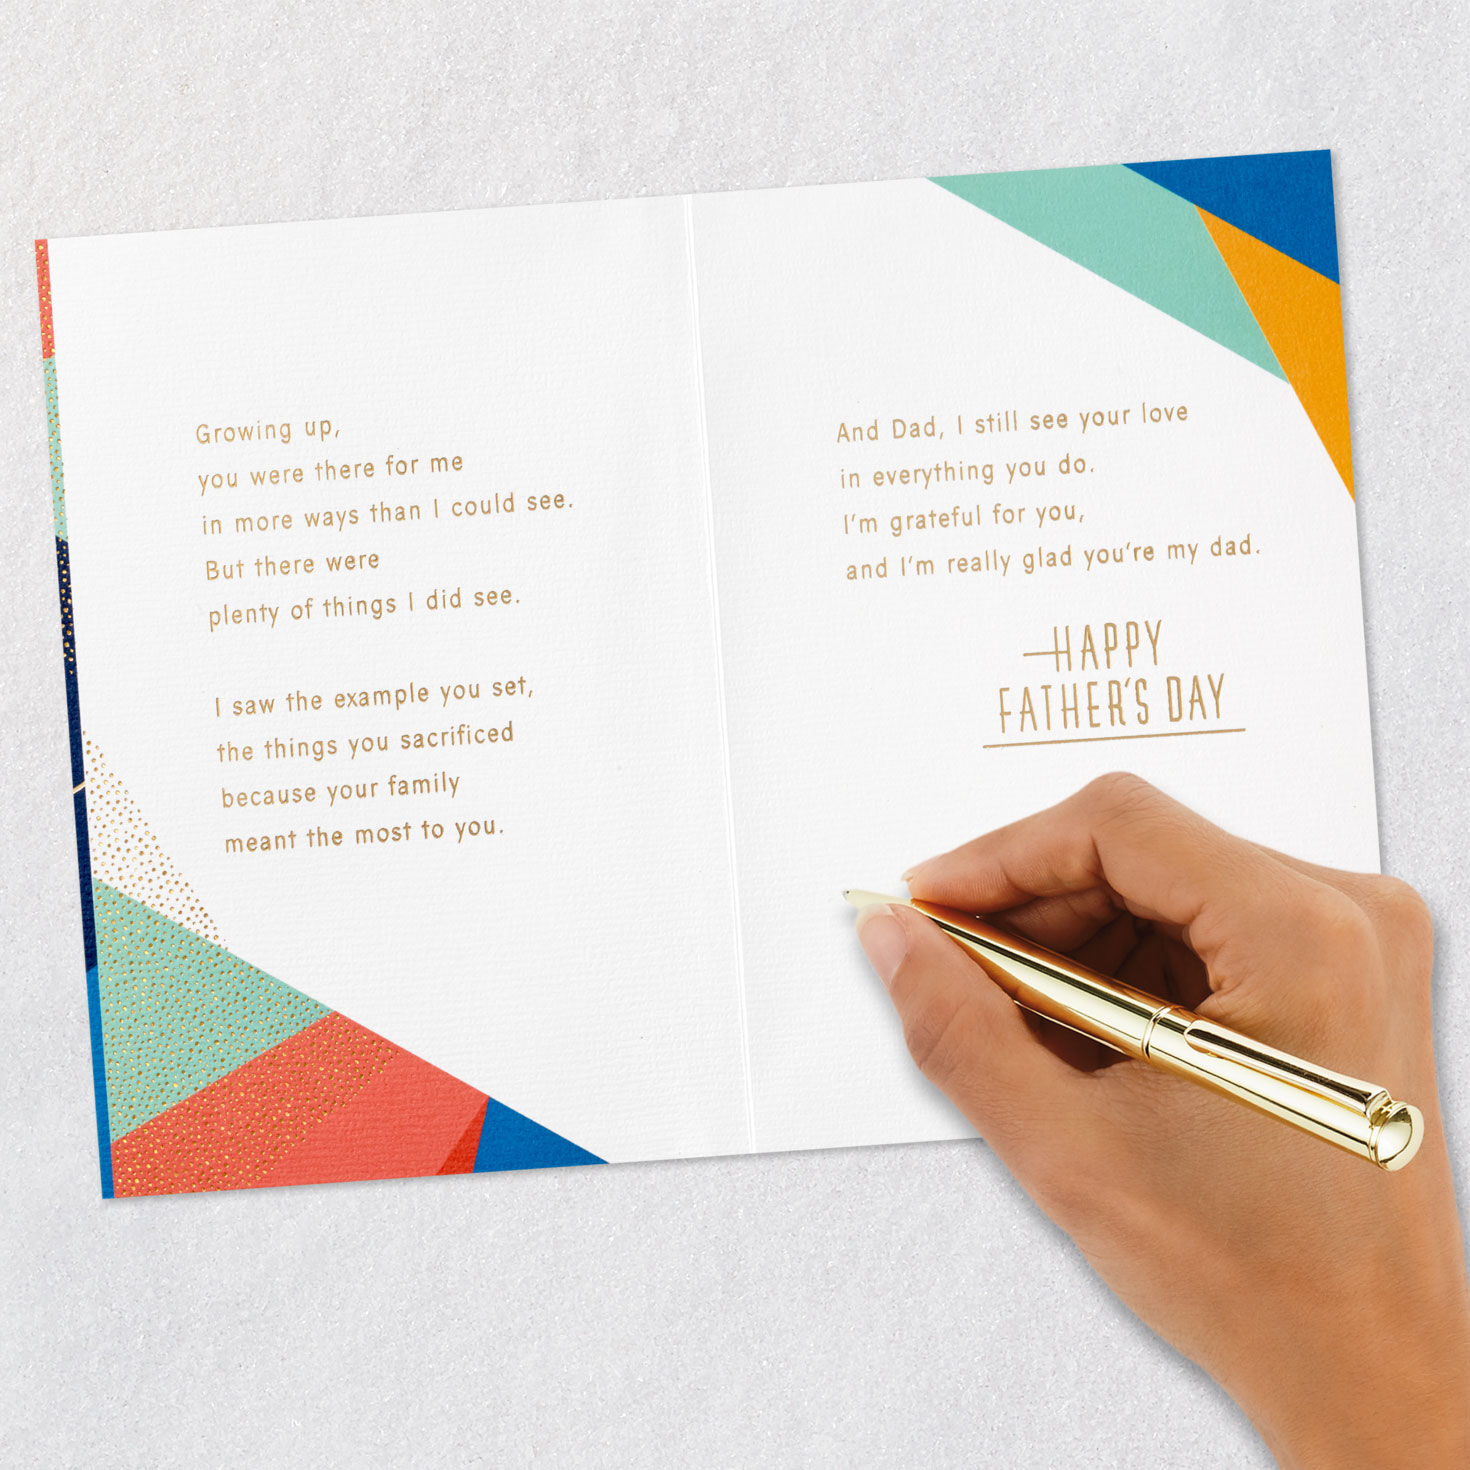 Growing up,
you were there for me
in more ways than I could see.
But there were
plenty of things I did see.
I saw the example you set,
the things you sacrificed
because your family
meant the most to you.
And Dad, I still see your love
in everything you do.
I'm grateful for you,
and I'm really glad you're my dad.
HAPPY
FATHER'S DAY